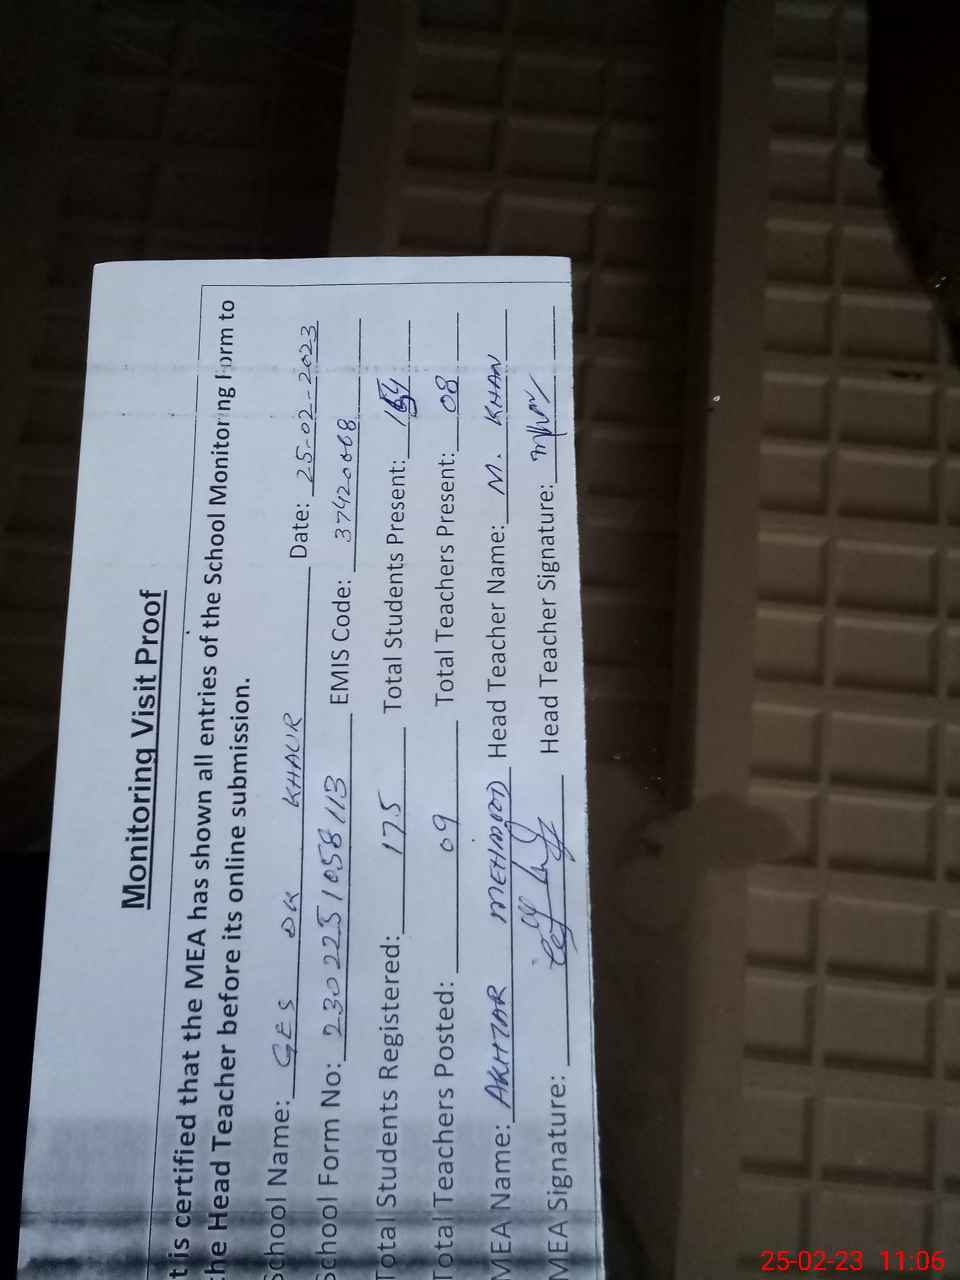 Monitoring Visit Proof
t is certified that the MEA has shown all entries of the School Monitoring Form to
he Head Teacher before its online submission.
School Name: GES DK KHAUR Date: 25-02-2023
School Form No: 2302251058113 EMIS Code: 37420668
Total Students Registered: 175 Total Students Present:
Total Teachers Posted: 09 Total Teachers Present: 08
MEA Name: AKHTAR MEHMOOD Head Teacher Name: M. KHAN
MEA Signature: Head Teacher Signature:
25-02-23 11:06